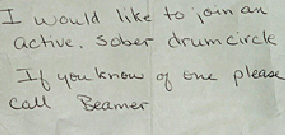 I would like to join an
active. sober drum circle
If you know of one please
call Beamer